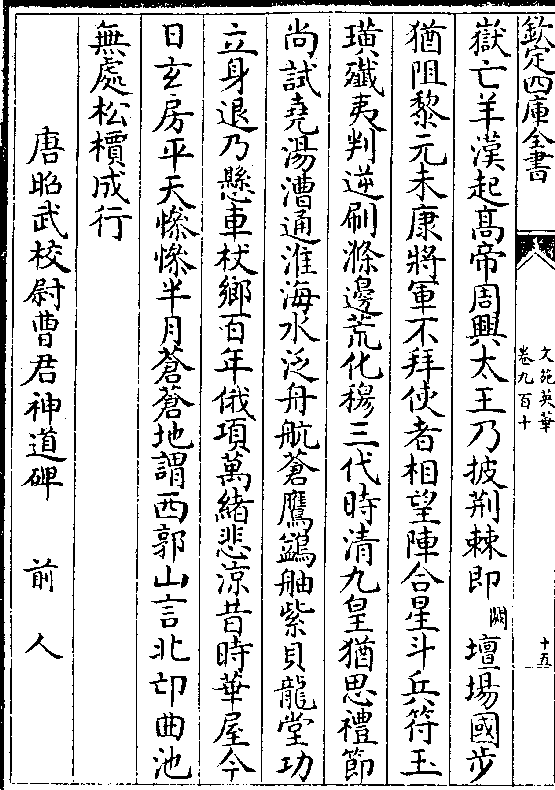 欽定四庫全書
文苑英華
卷九百十
十五
嶽亡羊漢起高帝周興太王乃披荆棘即闕壇場國步
猶阻黎元未康將軍不拜使者相望陣合星斗兵符玉
璜殱夷判逆刷滌邊荒化穆三代時清九皇猶思禮節
尚試堯湯漕通淮海水泛舟航蒼鷹鷁舳紫貝龍堂功
立身退乃懸車杖鄉百年俄項萬緒悲凉昔時華屋今
日玄房平天慘慘半月蒼蒼地謂西郭山言北邙曲池
無處松檟成行
唐昭武校尉曹君神道碑 前人